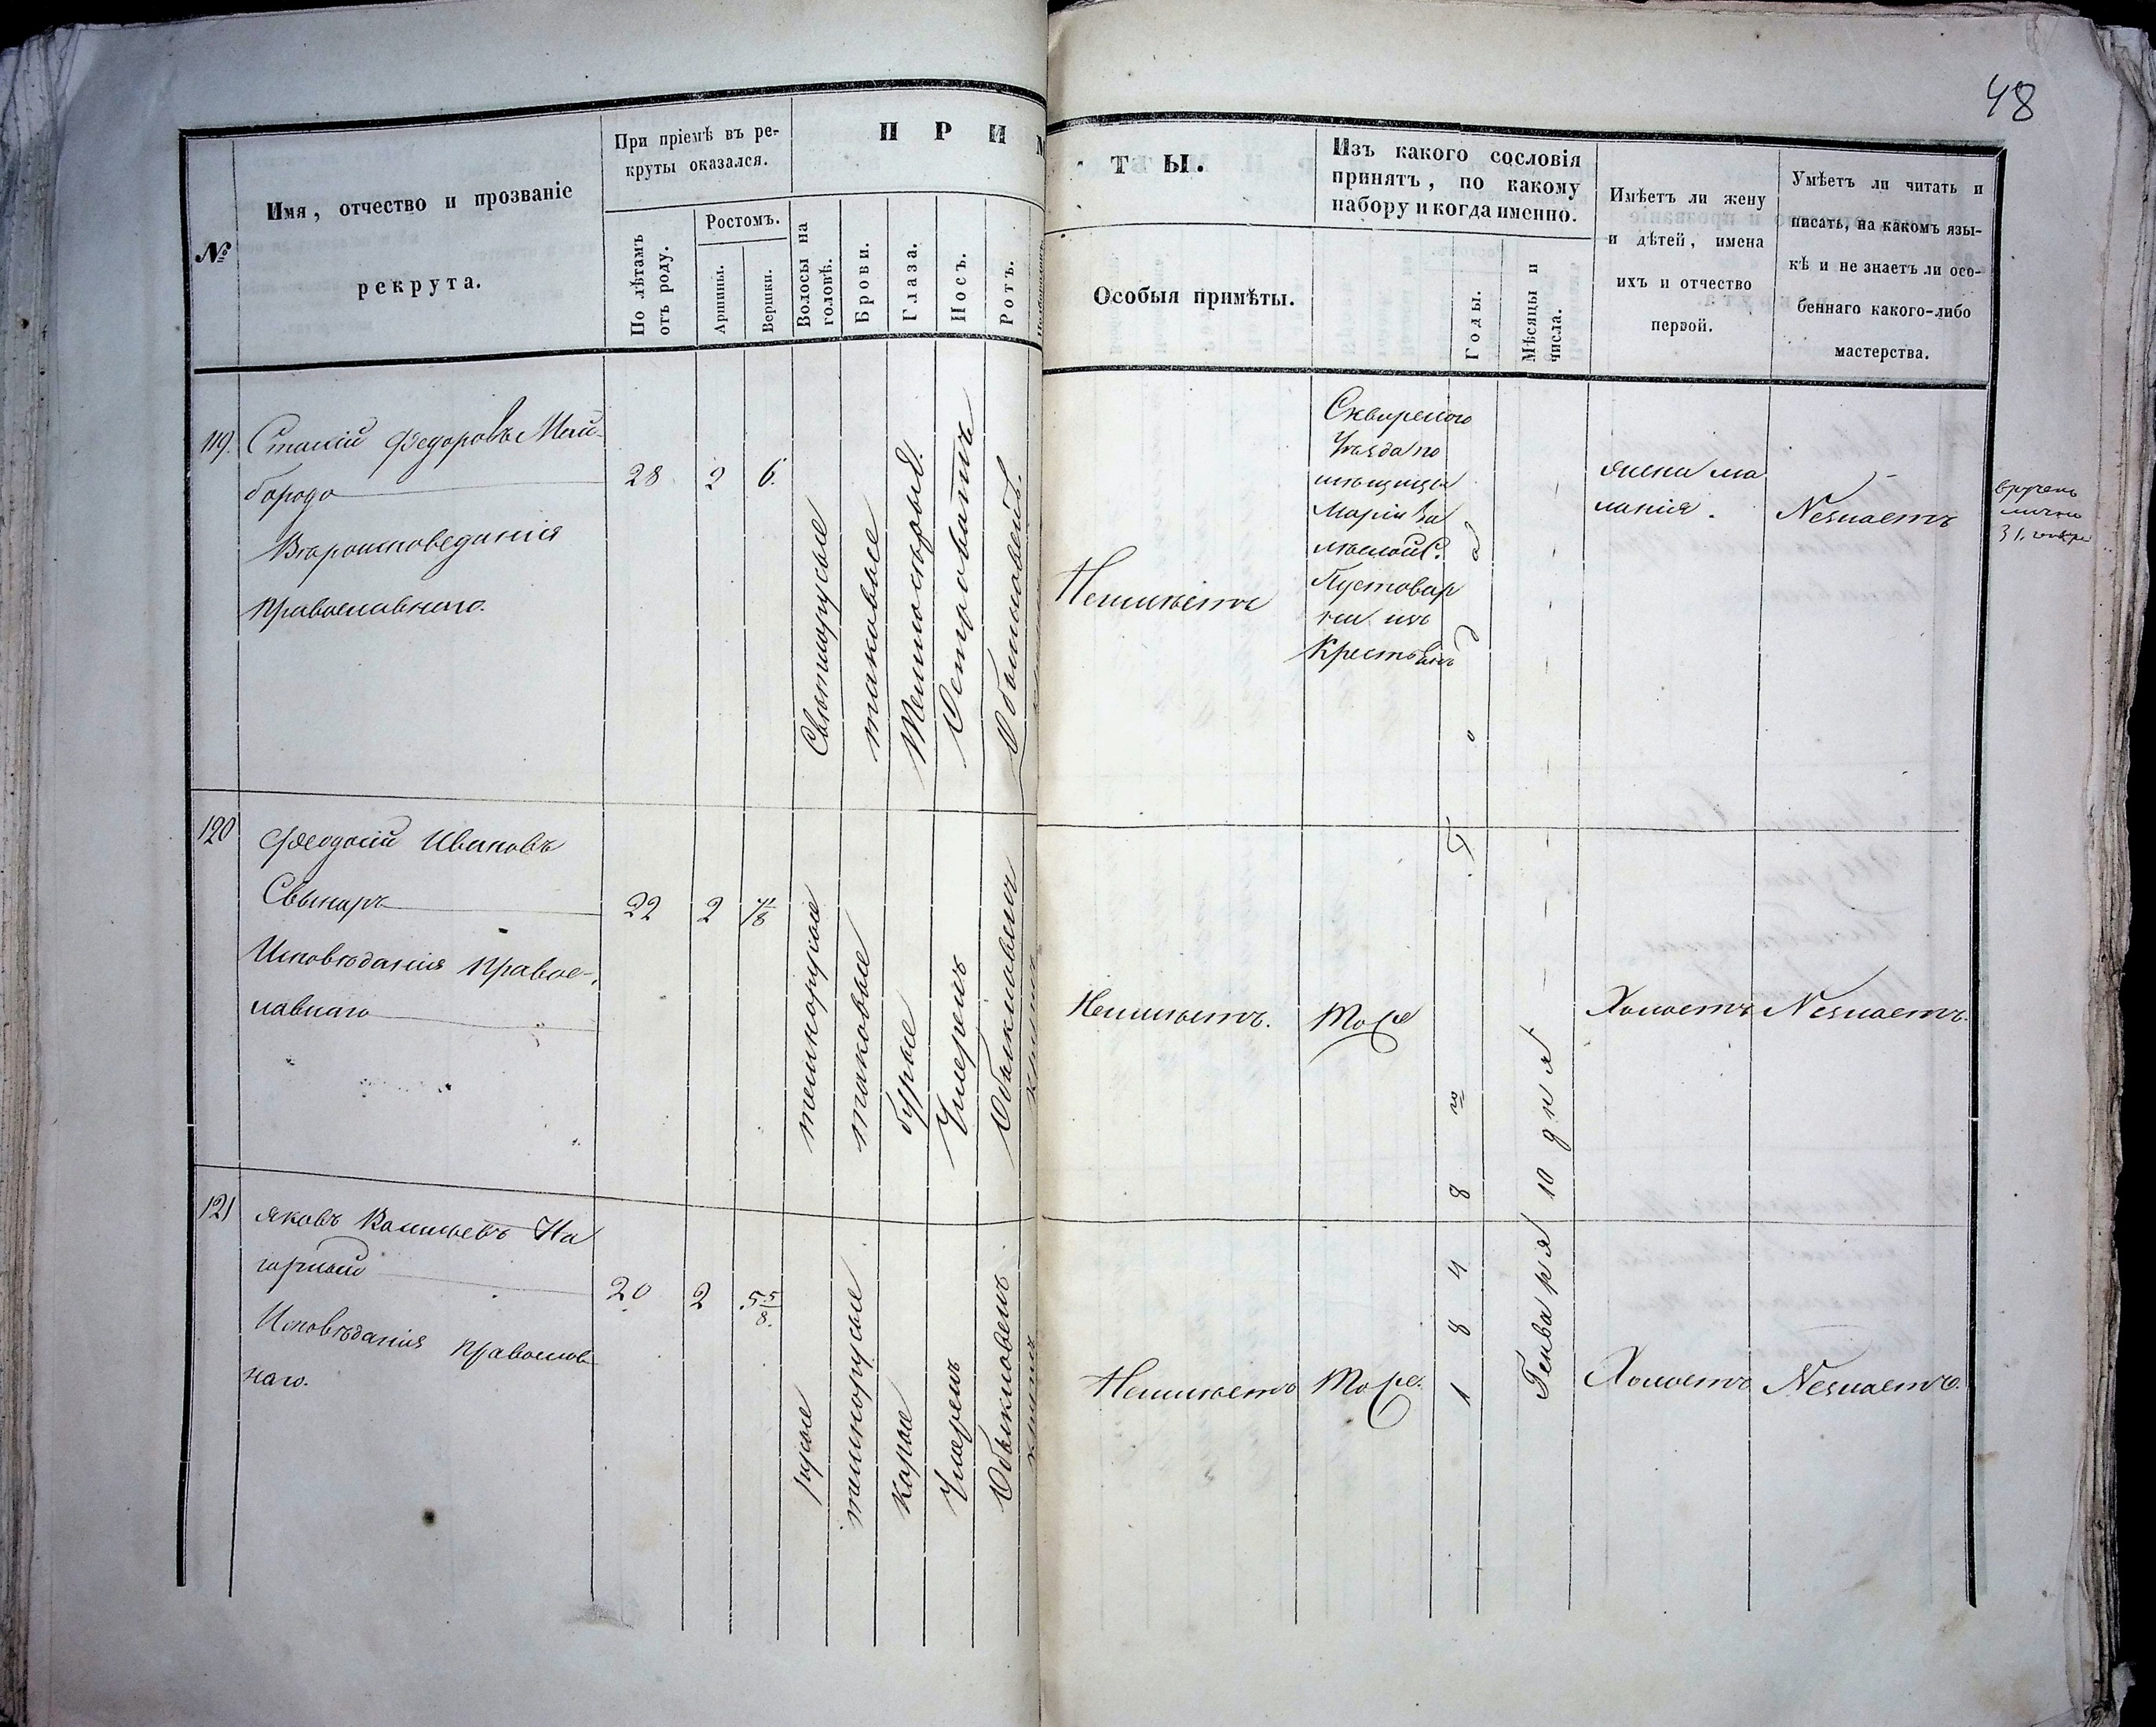 48
№
Имя, отчество и прозваніе
рекрута.
При пріемѣ въ ре-
круты оказался.
По лѣтамъ
отъ роду.
Ростомъ.
Аршины.
Вершки.
П Р И М
Волосы на
головѣ.
Брови.
Глаза.
Носъ.
Ротъ.
Т Ы.
Особыя примѣты.
Изъ какого сословія
принятъ, по какому
набору и когда именно.
Годы.
Мѣсяцы и
числа.
Имѣетъ ли жену
и дѣтей, имена
ихъ и отчество
первой.
Умѣетъ ли читать и
писать, на какомъ язы-
кѣ и не знаетъ ли осо-
беннаго какого-либо
мастерства.
119.
Федоровъ Май-
борода
Вѣроисповеданія
Православнаго.
28
2
6.
Свѣтлорусые
таковые
Темносѣрые.
Островатъ
Обыкновенъ.
Неимѣетъ
Сквирского
Уѣзда по
мѣщицы
Маріи За
лѣской С.
Пустовар
ни изъ
Крестьянъ
жена Ма
ланія.
Незнаетъ
вручено
лично
120
Феодосій Ивановъ
Свынаръ
Исповѣданія Правос-
лавнаго
22
2
4/8
темнорусые
таковые
бурые
Умѣренъ
Обыкновенъ
Неимѣетъ.
Тоже
Холостъ
Незнаетъ.
121
Яковъ Васильевъ На
горный
Исповѣданія Православ
наго.
20
2
5 5/8.
русые
темнорусые
карые
Умѣренъ
Обыкновенъ
Неимѣетъ
Тоже.
1 8 4 8 го г о д а
Генваря 10 дня
Холостъ
Незнаетъ.